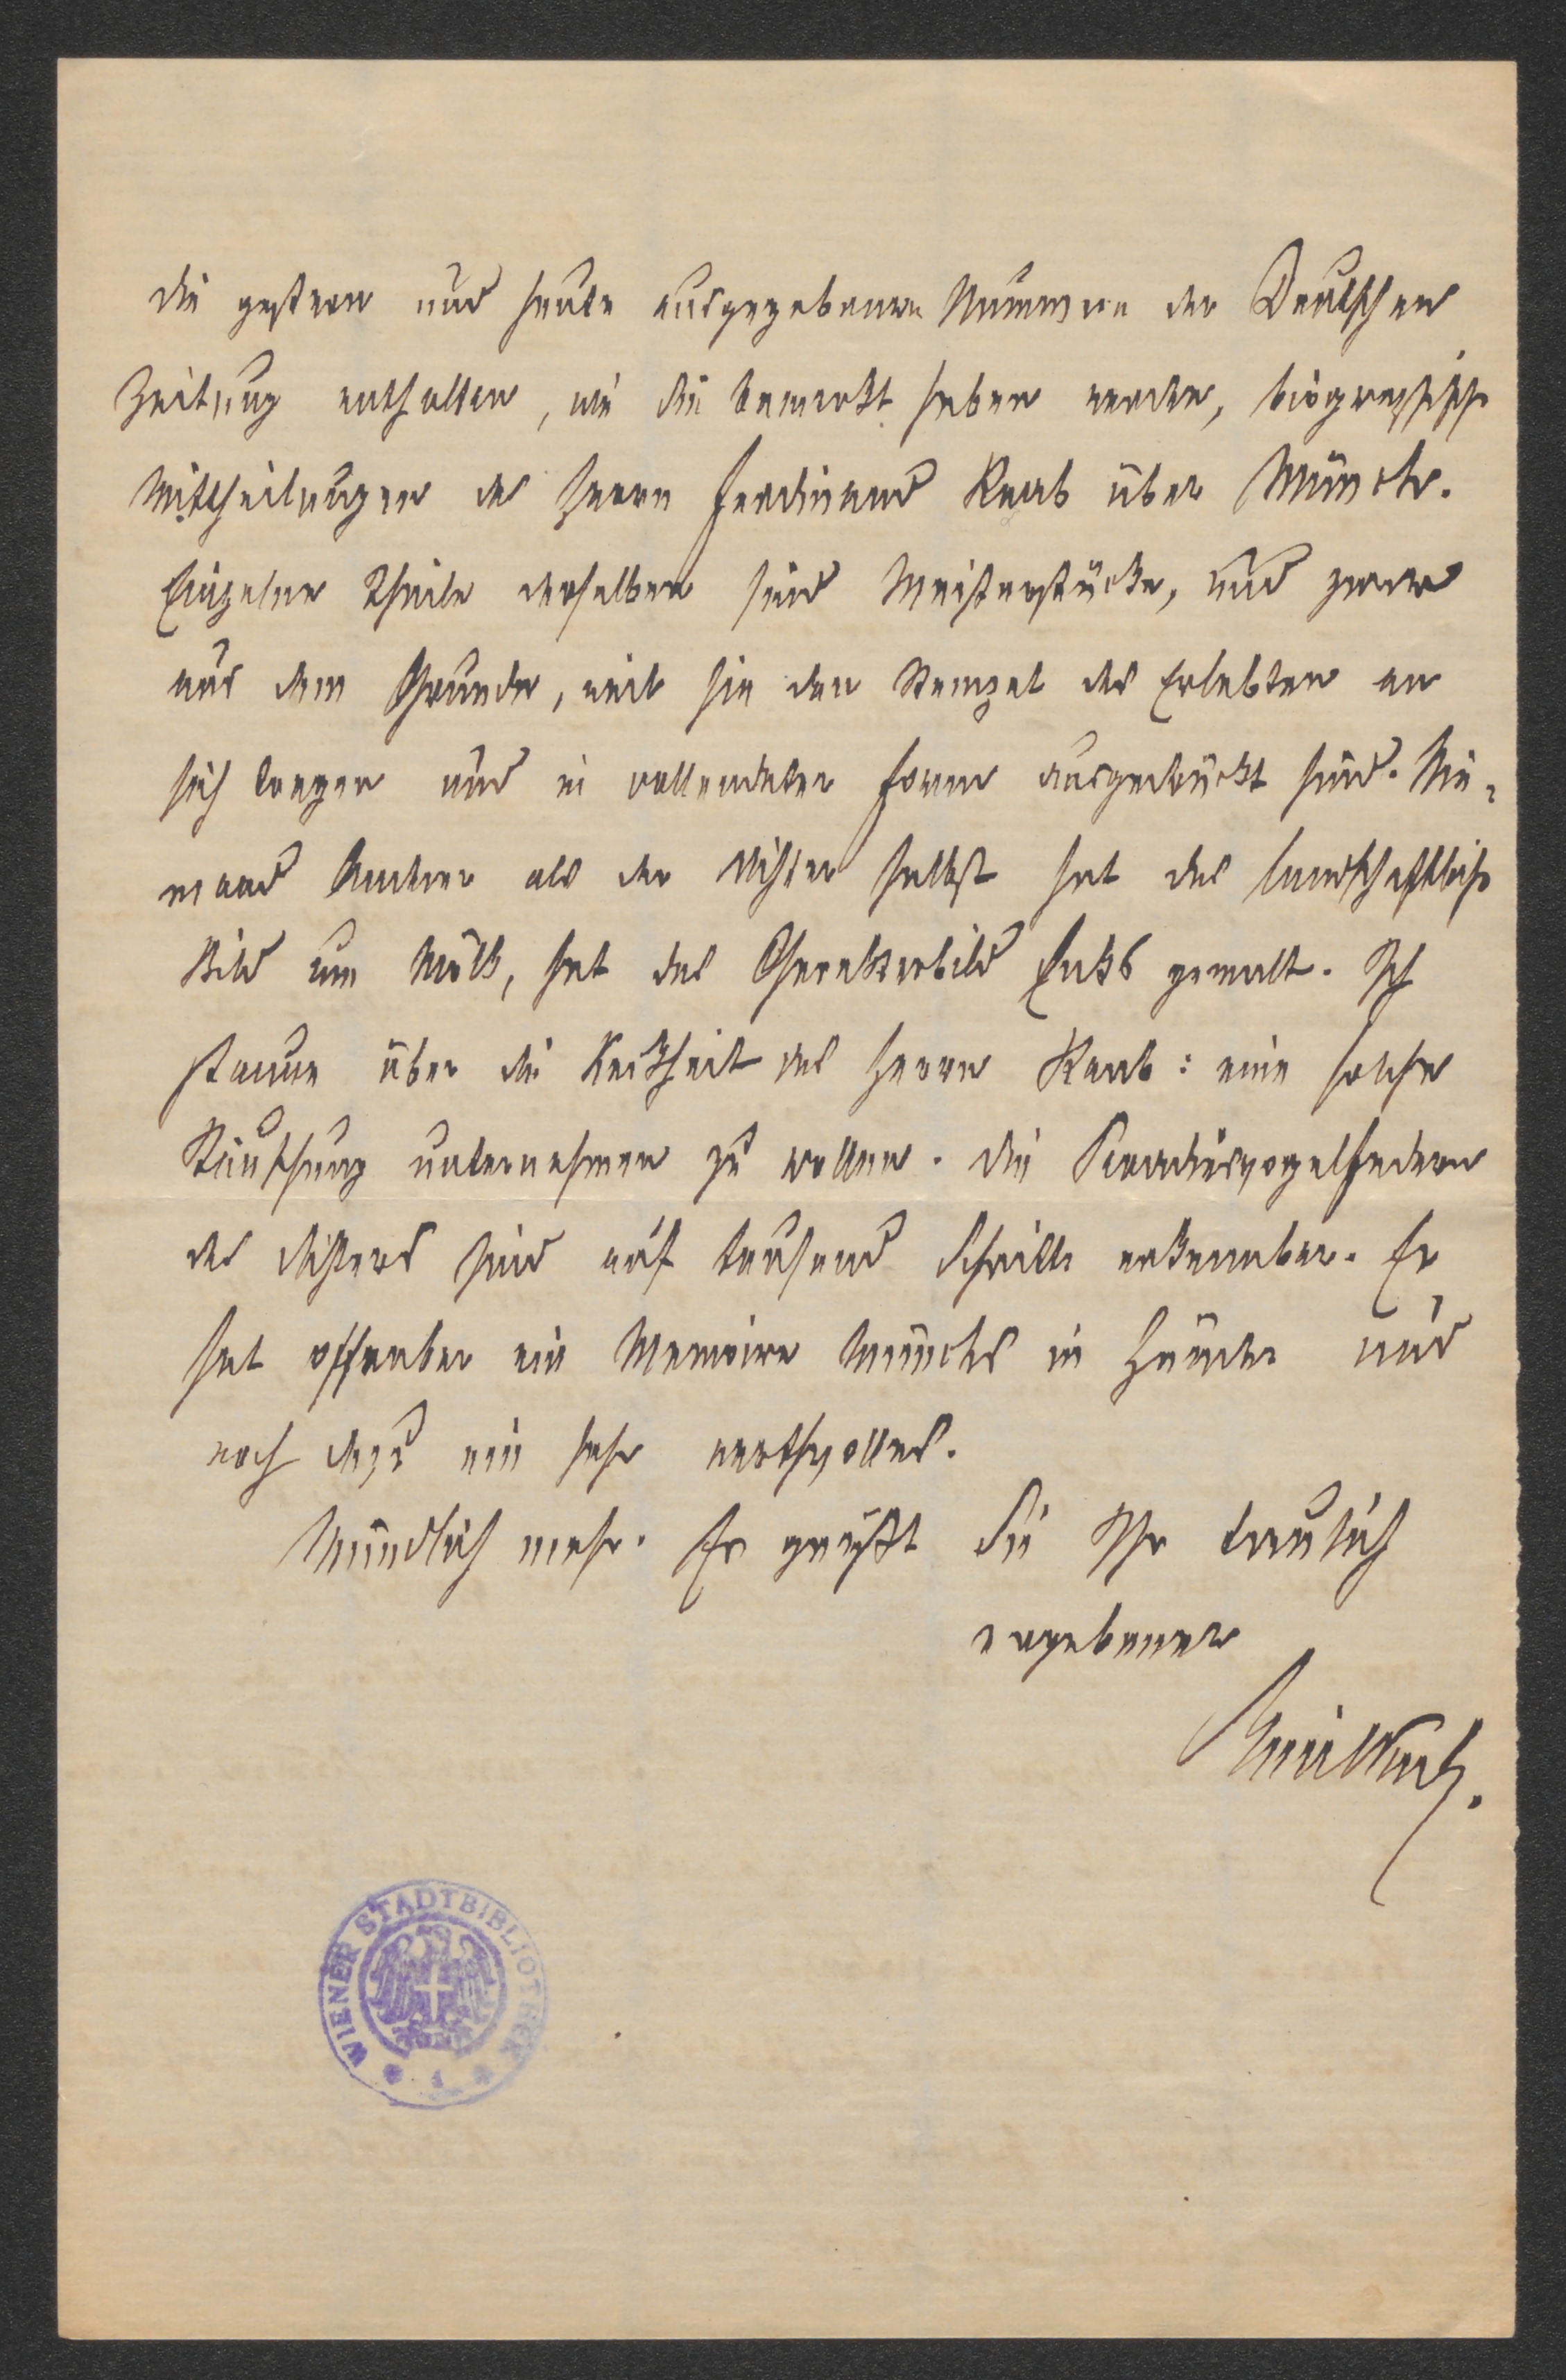 Die gestern und heute ausgegebenen Nummern der Deutschen
Zeitung enthalten, wie Sie bemerkt haben werden, biographische
Mittheilungen des Herrn Ferdinand Raab über Münch.
Einzelne Theile derselben sind Meisterstücke, und zwar
aus dem Grunde, weil sie den Stempel des Erlebten an
sich tragen und in vollendeter Form ausgedrückt sind. Nie¬
mand Andrer als der Dichter selbst hat das landschaftliche
Bild um Mölk, hat das Charakterbild Enks gemalt. Ich
staune über die Keckheit des Herrn Raab: eine solche
Täuschung unternehmen zu wollen. Die Paradiesvogelfedern
des Dichters sind auf tausend Schritte erkennbar. Er
hat offenbar ein Memoire Münchs in Händen und
noch dazu ein sehr werthvolles.
Mündlich mehr. Es grüßt Sie Ihr treulich
ergebener
WIENER STADTBIBLIOTHEK